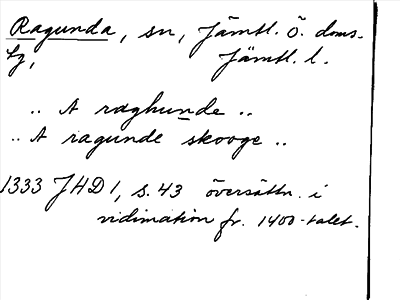 Ragunda, sn, Jämtl. ö. doms.
tg, Jämtl. l.
.. A raghunde ..
.. A ragunde skooge ..
1333 JHD 1, s. 43 översättn. i
vidimation fr. 1400-talet.